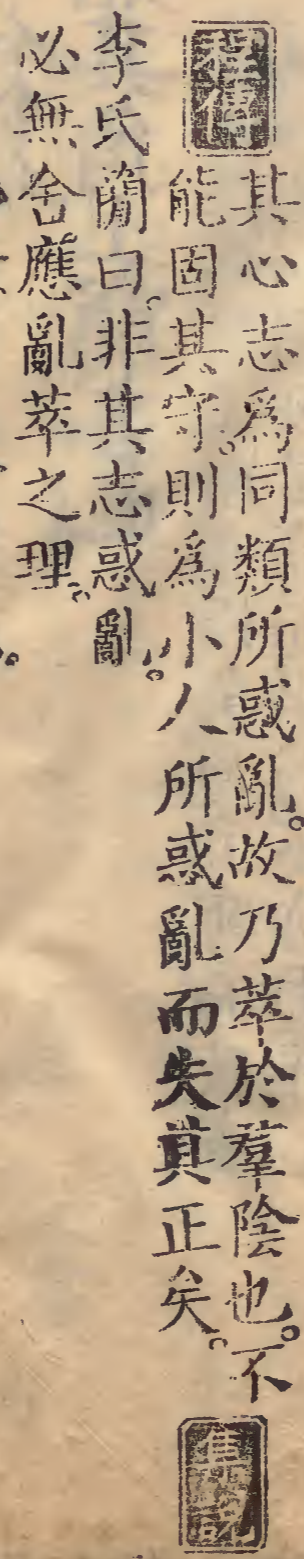 程傳
其心志爲同類所惑亂。故乃萃於羣陰也。不
能固其守。則爲小人所惑亂而失其正矣。
集說
李氏簡曰。非其志惑亂。
必無舍應亂萃之理。